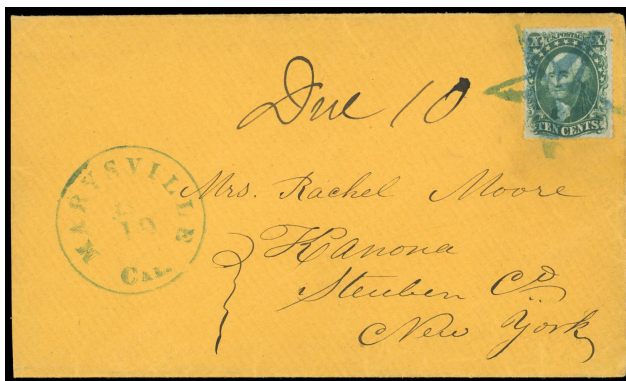 U.S. POSTAGE
X X
TEN CENTS
Due 10
MARYSVILLE
10
CAL.
Mrs. Rachel Moore
Kanona
Steuben Co
New York